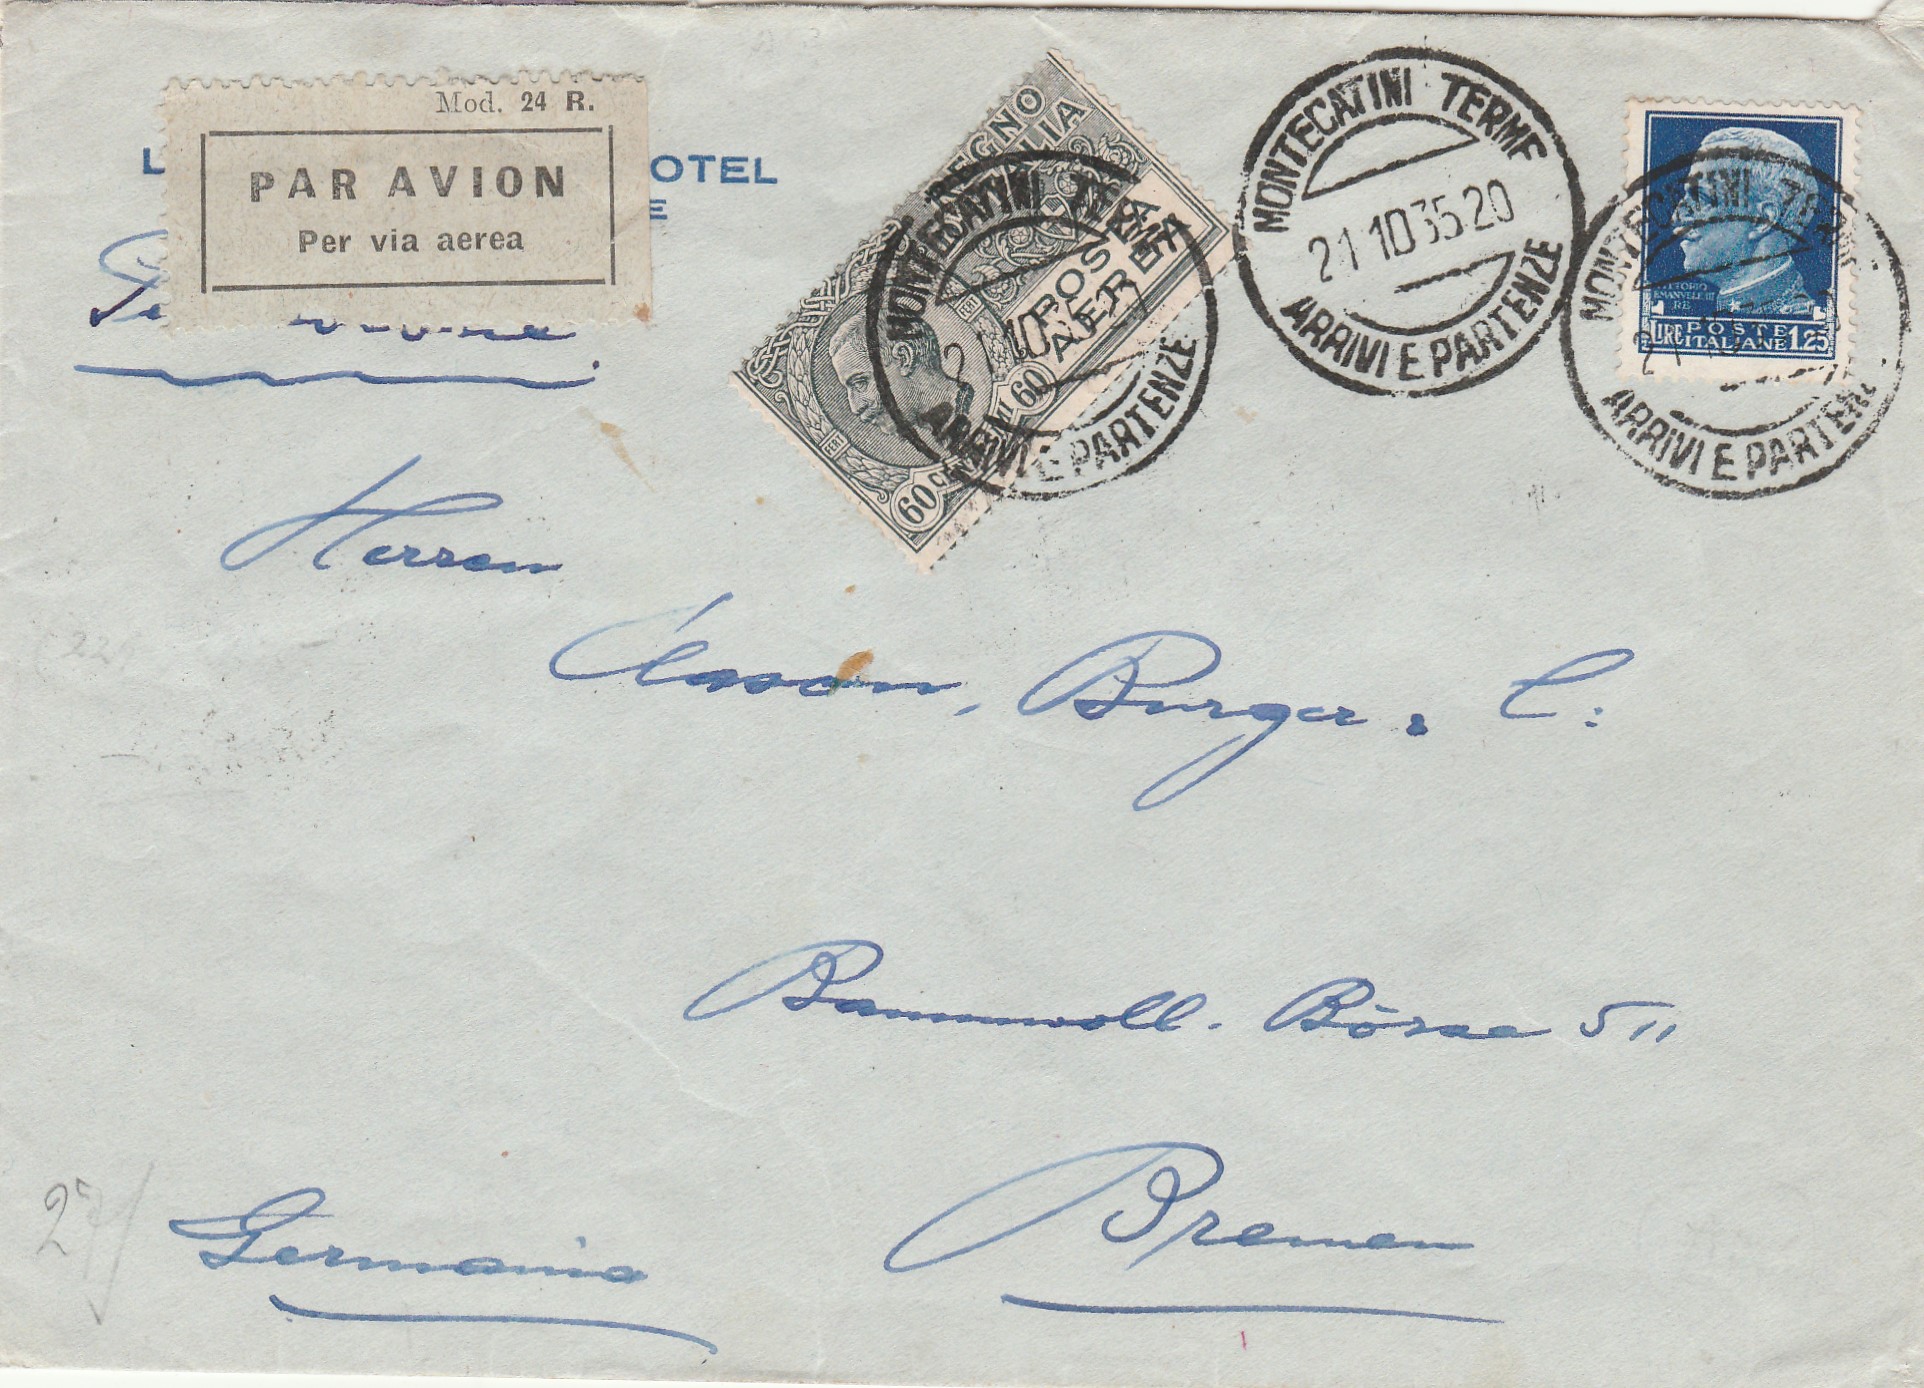 Mod. 24 R.
PAR AVION
Per via aerea
L OTEL
E
REGNO
POSTA
AEREA
60
60 c
MONTECATINI TERME
21 10
ARRIVI E PARTENZE
MONTECATINI TERME
21 10 35. 20
ARRIVI E PARTENZE
VITTORIO
EMANUELE III
RE
POSTE
LIRE ITALIANE 1.25
MONTECATINI TER
21 10
ARRIVI E PARTEN
Herren
Clason, Burger & C:
Baumwoll-Börse 511
Bremen
Germania
27/